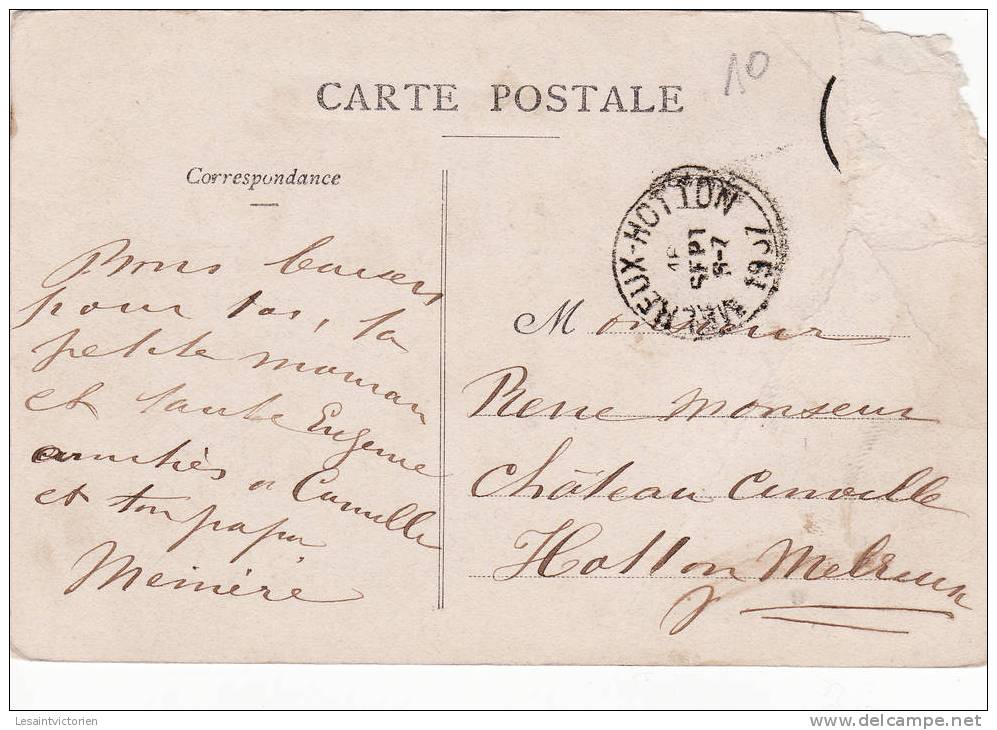 10
CARTE POSTALE
Correspondance
Bons baisers
pour toi, ta
petite maman
et tante Eugenie
amitiés a Camille
et ton papa
MELREUX-HOTTON 1907
SEPT
6-7
Monsieur
Rene Monseur
Château
Hotton Melreux
Lesaintvictorien
www.delcampe.net